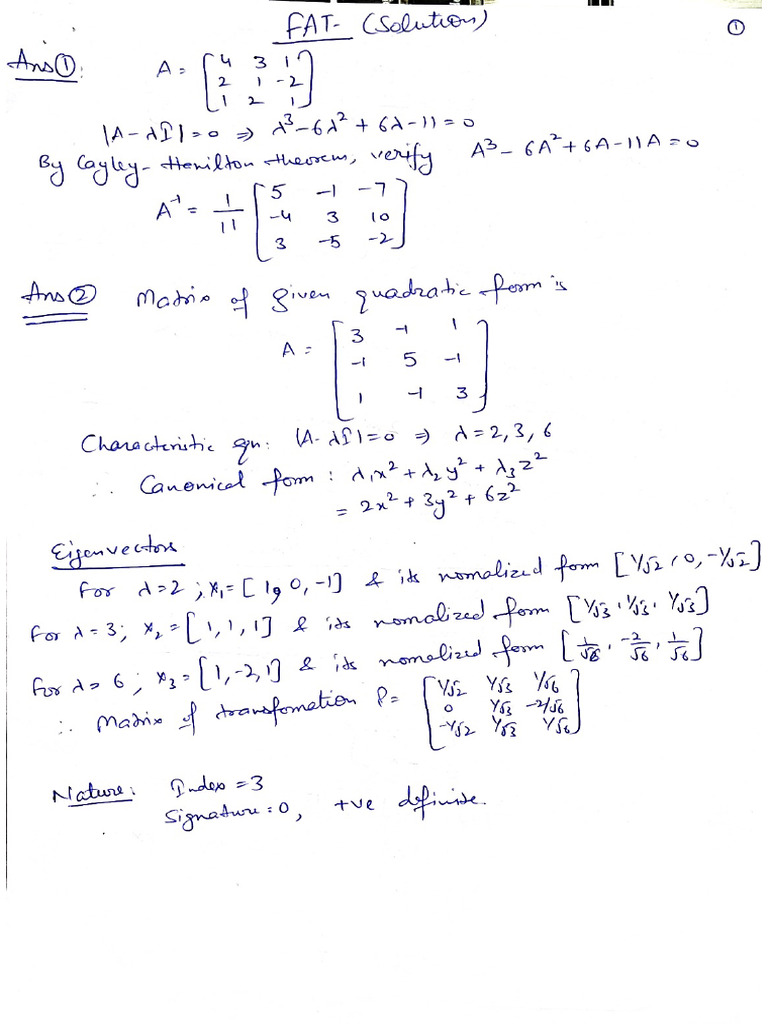 FAT- (Solution)
①
Ans①: A = [4 3 1
2 1 -2
1 2 1]
|A - λI| = 0 ⇒ λ³ - 6λ² + 6λ - 11 = 0
By Cayley-Hemilton theorem, verify A³ - 6A² + 6A - 11A = 0
A⁻¹ = 1/11 [5 -1 -7
-4 3 10
3 -5 -2]
Ans② Matrix of given quadratic form is
A = [3 -1 1
-1 5 -1
1 -1 3]
Characteristic eqn: |A - λI| = 0 ⇒ λ = 2, 3, 6
∴ Canonical form : λ₁x² + λ₂y² + λ₃z²
= 2x² + 3y² + 6z²
Eigenvectors
For λ=2 ; x₁ = [1, 0, -1] & its nomalized form [1/√2, 0, -1/√2]
For λ = 3; x₂ = [1, 1, 1] & its nomalized form [1/√3, 1/√3, 1/√3]
For λ = 6; x₃ = [1, -2, 1] & its nomalized form [1/√6, -2/√6, 1/√6]
∴ Matrix of transfomation P = [1/√2 1/√3 1/√6
0 1/√3 -2/√6
-1/√2 1/√3 1/√6]
Nature: Index = 3
Signature = 0, +ve definite.